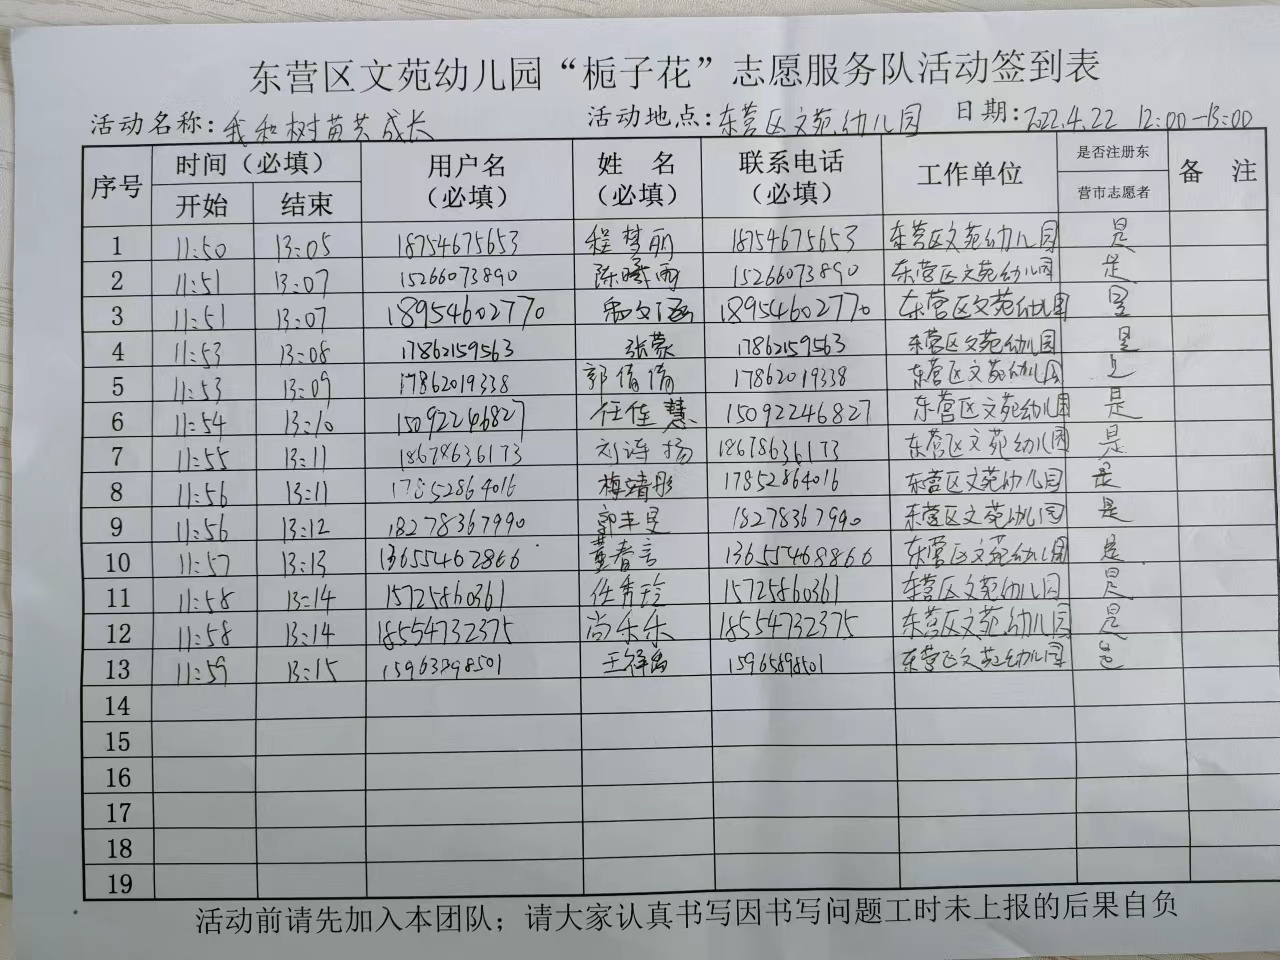 东营区文苑幼儿园“栀子花”志愿服务队活动签到表
活动名称：我和树苗共成长 活动地点：东营区文苑幼儿园 日期：2022.4.22 12:00-13:00
序号 时间（必填） 用户名（必填） 姓 名（必填） 联系电话（必填） 工作单位 是否注册东营市志愿者 备 注
开始 结束
1 11:50 13:05 18754675653 程梦丽 18754675653 东营区文苑幼儿园 是
2 11:51 13:07 15266073890 陈曦雨 15266073890 东营区文苑幼儿园 是
3 11:51 13:07 18954602770 18954602770 东营区文苑幼儿园 是
4 11:53 13:08 17862159563 张蒙 17862159563 东营区文苑幼儿园 是
5 11:53 13:09 17862019338 郭倩倩 17862019338 东营区文苑幼儿园
6 11:54 13:10 15092246827 任佳慧 15092246827 东营区文苑幼儿园 是
7 11:55 13:11 18678636173 刘连扬 18678636173 东营区文苑幼儿园 是
8 11:56 13:11 17852864016 梅靖彤 17852864016 东营区文苑幼儿园 是
9 11:56 13:12 18278367990 18278367990 东营区文苑幼儿园 是
10 11:57 13:13 13655462866 董春言 13655468866 东营区文苑幼儿园 是
11 11:58 13:14 15725860361 任秀玲 15725860361 东营区文苑幼儿园 是
12 11:58 13:14 18554732375 尚乐乐 18554732375 东营区文苑幼儿园 是
13 11:59 13:15 15963898501 15965898501 东营区文苑幼儿园 是
14
15
16
17
18
19
活动前请先加入本团队；请大家认真书写因书写问题工时未上报的后果自负